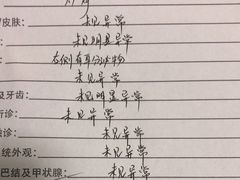 皮肤： 未见异常
未见明显异常
右侧有耳分泌物
未见异常
及牙齿： 未见明显异常
听诊： 未见异常
触诊： 未见异常
统外观： 未见异常
巴结及甲状腺： 未见异常